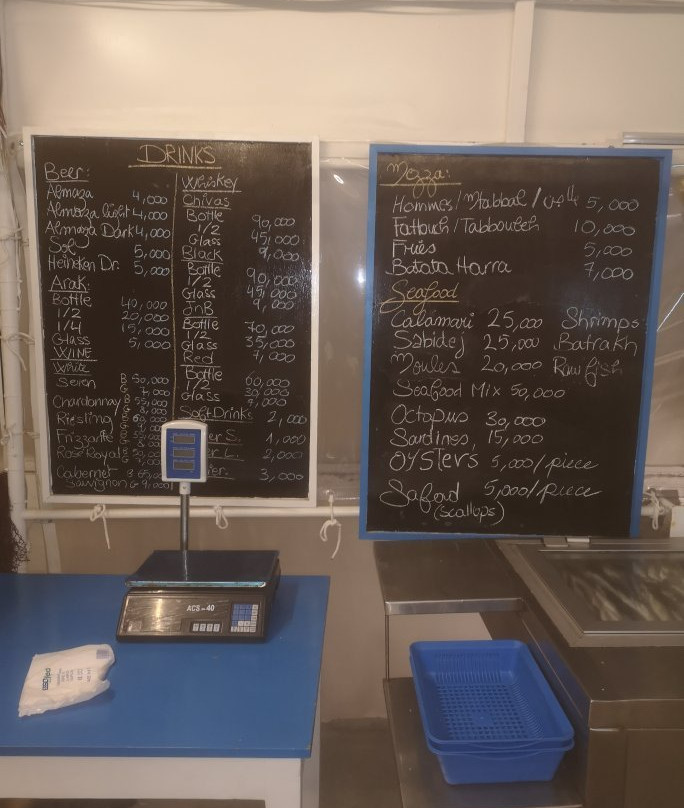 DRINKS
Beer:
Almaza 4,000
Almaza light 4,000
Almaza Dark 4,000
Sol 5,000
Heineken Dr. 5,000
Arak:
Bottle 40,000
1/2 20,000
1/4 15,000
Glass 5,000
WINE
White
Seven B 50,000
G 7,000
Chardonnay B 55,000
G 8,000
Riesling
Frizzante
Rose Royal
Cabernet B 65,000
Sauvignon G 9,000
Whiskey
Chivas
Bottle 90,000
1/2 45,000
Glass 9,000
Black
Bottle 90,000
1/2 45,000
Glass 9,000
JnB
Bottle 70,000
1/2 35,000
Glass 7,000
Red
Bottle 60,000
1/2 30,000
Glass
Soft Drinks 2,000
er S. 1,000
r L. 2,000
er. 3,000
Mezza:
Hommos/Mtabbal/ 5,000
Fattouch/Tabbouleh 10,000
Fries 5,000
Batata Harra 7,000
Seafood
Calamari 25,000 Shrimps
Sabidej 25,000 Batrakh
Moules 20,000 Raw fish
Seafood Mix 50,000
Octopus 30,000
Sardines, 15,000
OYSTERS 5,000/piece
Safoud 5,000/piece
(scallops)
ACS-40